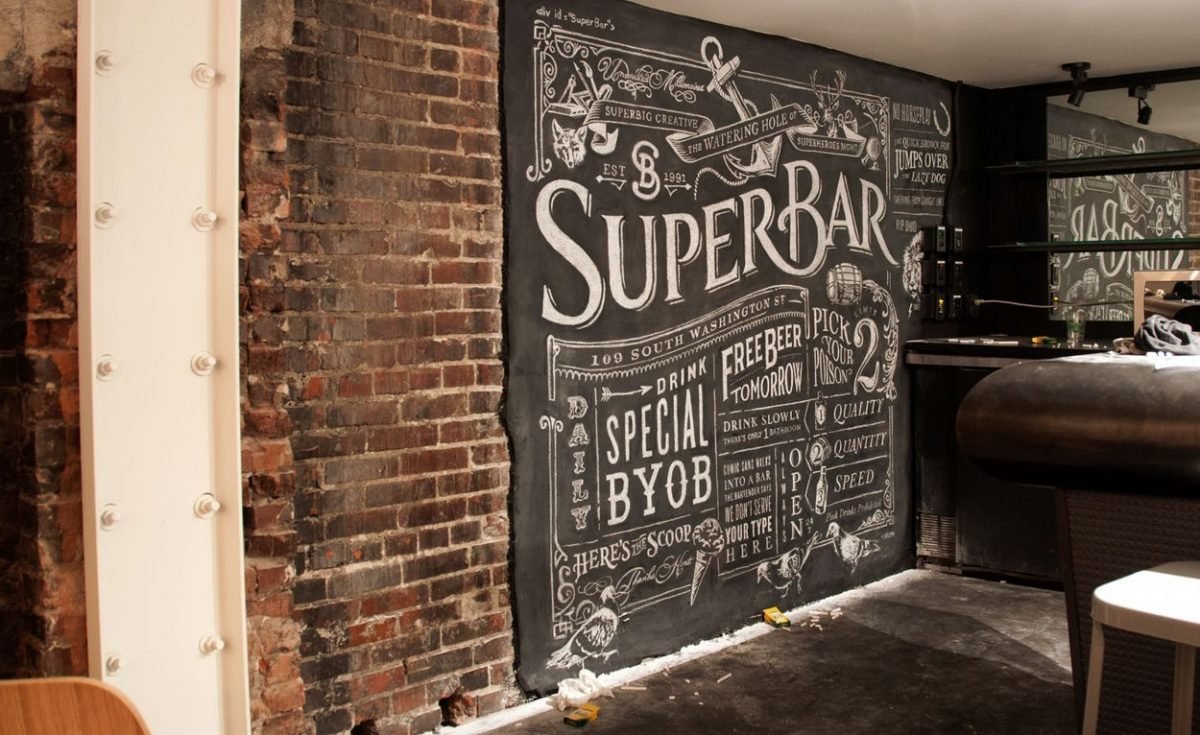 <div id="SuperBar">
SUPERBIG CREATIVE
THE WATERING HOLE OF
SUPERHEROES MGMT.
EST 1991
SB
SUPERBAR
109 SOUTH WASHINGTON ST
DAILY
DRINK
SPECIAL
BYOB
FREE BEER
TOMORROW
DRINK SLOWLY
THERE'S ONLY 1 BATHROOM
COMIC SANS WALKS
INTO A BAR
THE BARTENDER SAYS
WE DON'T SERVE
YOUR TYPE
HERE
OPEN
PICK
YOUR
POISON
LIMIT
2
QUALITY
2
QUANTITY
SPEED
Pink Drinks Prohibited
HERE'S THE SCOOP
NO HORSEPLAY
THE QUICK BROWN FOX
JUMPS OVER
THE LAZY DOG